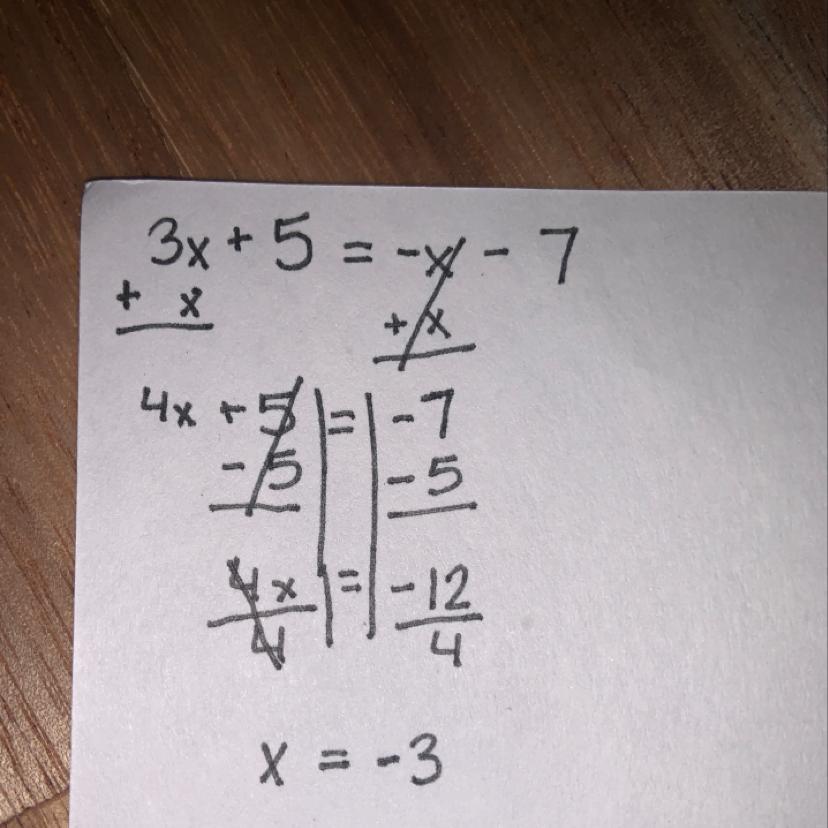 3x + 5 = -x - 7
+ x + x
4x + 5 = -7
- 5 - 5
4x = -12
4 4
x = -3